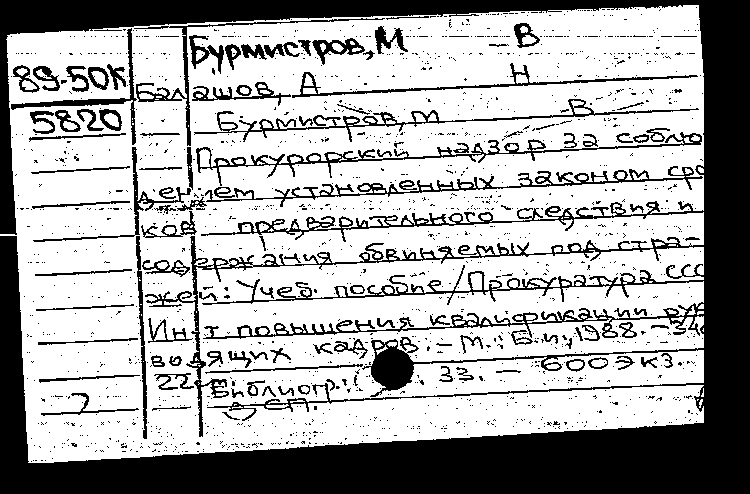 Бурмистров, М В
89-50К
Балашов, А Н
5820
Бурмистров, М В
Прокурорский надзор за соблю
дением установленных законом сро
ков предварительного следствия и
содержания обвиняемых под стра-
жей: Учеб. пособие / Прокуратура ССС
Ин-т повышения квалификации рук
водящих кадров. - М.: Б.и., 1988. - 34с
22 Библиогр.: 33. - 600 экз.